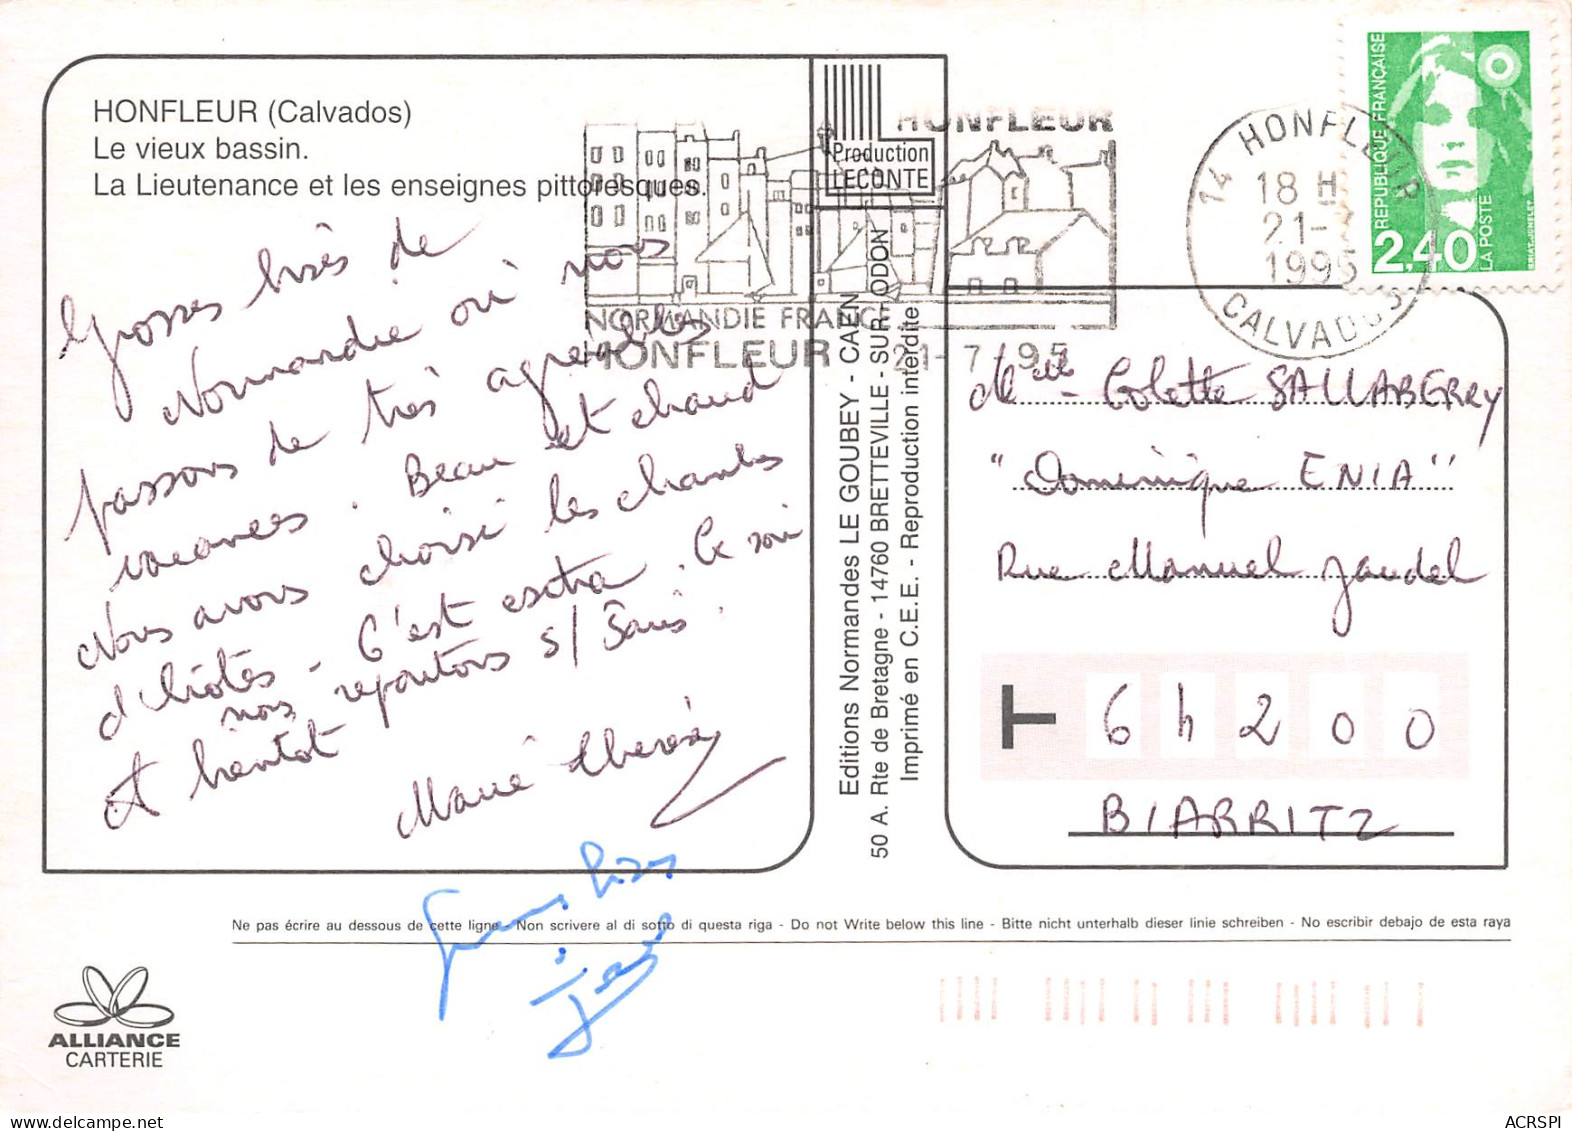 HONFLEUR (Calvados)
Le vieux bassin.
La Lieutenance et les enseignes pittoresques.
Grosses bises de
Normandie où nous
passons de très agréables
vacances. Beau et chaud
Nous avons choisi les chambres
d'hôtes - C'est extra. Ce soir
nous repartons s/ Paris.
A bientôt
Marie Thérèse
Grosses bises
Production
LECONTE
Editions Normandes LE GOUBEY - CAEN
50 A. Rte de Bretagne - 14760 BRETTEVILLE - SUR - ODON
Imprimé en C.E.E. - Reproduction interdite
HONFLEUR
NORMANDIE FRANCE
HONFLEUR 21-7 95
14 HONFLEUR
18 H
21-7
1995
CALVADOS
REPUBLIQUE FRANÇAISE
2,40
LA POSTE
BRIAT-JUMELET
Melle - Colette SALLABERRY
"Dominique ENIA"
Rue Manuel Jaudel
T 64200
BIARRITZ
Ne pas écrire au dessous de cette ligne - Non scrivere al di sotto di questa riga - Do not Write below this line - Bitte nicht unterhalb dieser linie schreiben - No escribir debajo de esta raya
ALLIANCE
CARTERIE
ACRSPI